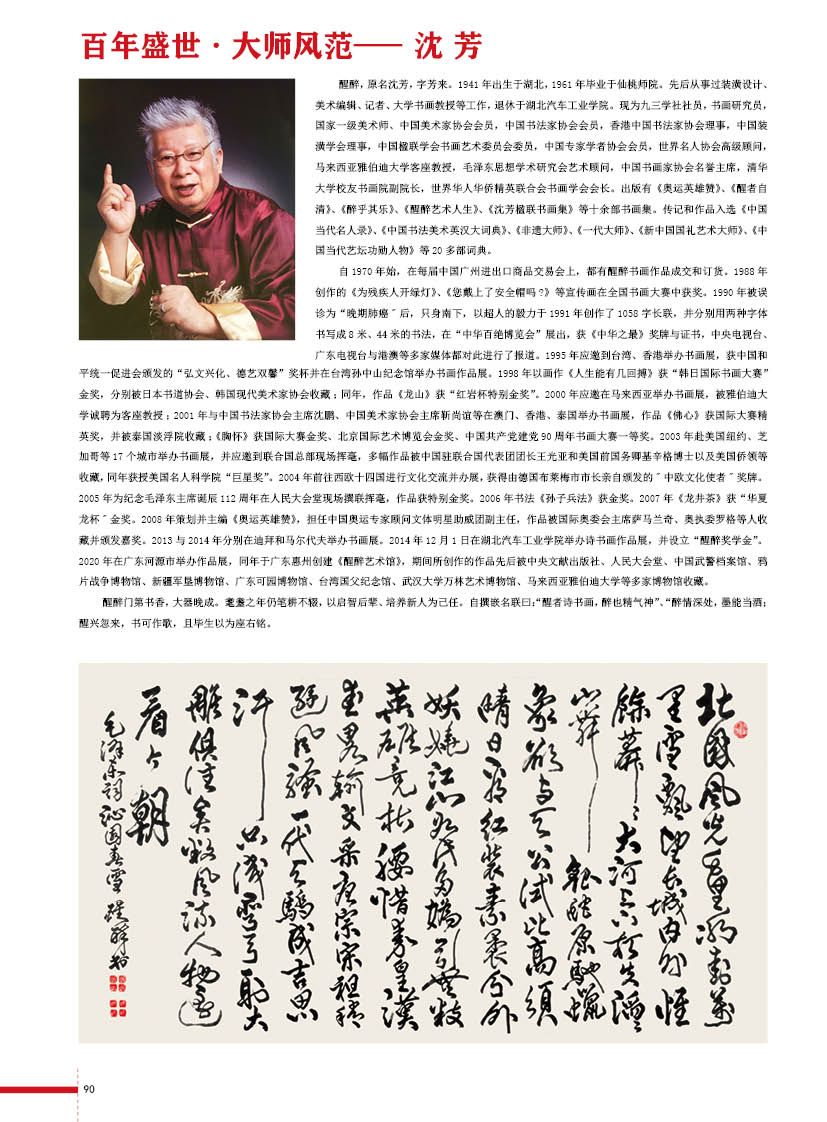 百年盛世·大师风范—— 沈 芳
醒醉，原名沈芳，字芳来。1941 年出生于湖北，1961 年毕业于仙桃师院。先后从事过装潢设计、
美术编辑、记者、大学书画教授等工作，退休于湖北汽车工业学院。现为九三学社社员，书画研究员，
国家一级美术师、中国美术家协会会员，中国书法家协会会员，香港中国书法家协会理事，中国装
潢学会理事，中国楹联学会书画艺术委员会委员，中国专家学者协会会员，世界名人协会高级顾问，
马来西亚雅伯迪大学客座教授，毛泽东思想学术研究会艺术顾问，中国书画家协会名誉主席，清华
大学校友书画院副院长，世界华人华侨精英联合会书画学会会长。出版有《奥运英雄赞》、《醒者自
清》、《醉乎其乐》、《醒醉艺术人生》、《沈芳楹联书画集》等十余部书画集。传记和作品入选《中国
当代名人录》、《中国书法美术英汉大词典》、《非遗大师》、《一代大师》、《新中国国礼艺术大师》、《中
国当代艺坛功勋人物》等 20 多部词典。
自 1970 年始，在每届中国广州进出口商品交易会上，都有醒醉书画作品成交和订货。1988 年
创作的《为残疾人开绿灯》、《您戴上了安全帽吗？》等宣传画在全国书画大赛中获奖。1990 年被误
诊为“晚期肺癌〞后，只身南下，以超人的毅力于 1991 年创作了 1058 字长联，并分别用两种字体
书写成 8 米、44 米的书法，在“中华百绝博览会”展出，获《中华之最》奖牌与证书，中央电视台、
广东电视台与港澳等多家媒体都对此进行了报道。1995 年应邀到台湾、香港举办书画展，获中国和
平统一促进会颁发的“弘文兴化、德艺双馨”奖杯并在台湾孙中山纪念馆举办书画作品展。1998 年以画作《人生能有几回搏》获“韩日国际书画大赛”
金奖，分别被日本书道协会、韩国现代美术家协会收藏；同年，作品《龙山》获“红岩杯特别金奖”。2000 年应邀在马来西亚举办书画展，被雅伯迪大
学诚聘为客座教授；2001 年与中国书法家协会主席沈鹏、中国美术家协会主席靳尚谊等在澳门、香港、泰国举办书画展，作品《佛心》获国际大赛精
英奖，并被泰国淡浮院收藏；《胸怀》获国际大赛金奖、北京国际艺术博览会金奖、中国共产党建党 90 周年书画大赛一等奖。2003 年赴美国纽约、芝
加哥等 17 个城市举办书画展，并应邀到联合国总部现场挥毫，多幅作品被中国驻联合国代表团团长王光亚和美国前国务卿基辛格博士以及美国侨领等
收藏，同年获授美国名人科学院“巨星奖”。2004 年前往西欧十四国进行文化交流并办展，获得由德国布莱梅市市长亲自颁发的〞中欧文化使者〞奖牌。
2005 年为纪念毛泽东主席诞辰 112 周年在人民大会堂现场撰联挥毫，作品获特别金奖。2006 年书法《孙子兵法》获金奖。2007 年《龙井茶》获“华夏
龙杯〞金奖。2008 年策划并主编《奥运英雄赞》，担任中国奥运专家顾问文体明星助威团副主任，作品被国际奥委会主席萨马兰奇、奥执委罗格等人收
藏并颁发嘉奖。2013 与 2014 年分别在迪拜和马尔代夫举办书画展。2014 年 12 月 1 日在湖北汽车工业学院举办诗书画作品展，并设立“醒醉奖学金”。
2020 年在广东河源市举办作品展，同年于广东惠州创建《醒醉艺术馆》，期间所创作的作品先后被中央文献出版社、人民大会堂、中国武警档案馆、鸦
片战争博物馆、新疆军垦博物馆、广东可园博物馆、台湾国父纪念馆、武汉大学万林艺术博物馆、马来西亚雅伯迪大学等多家博物馆收藏。
醒醉门第书香，大器晚成。耄耋之年仍笔耕不辍，以启智后辈、培养新人为己任。自撰嵌名联曰：“醒者诗书画，醉也精气神”、“醉情深处，墨能当酒；
醒兴忽来，书可作歌，且毕生以为座右铭。
北国风光千里冰封万
里雪飘望长城内外惟
馀莽莽大河上下顿失滔滔
山舞银蛇原驰蜡
象欲与天公试比高须
晴日看红装素裹分外
妖娆江山如此多娇引无数
英雄竞折腰惜秦皇汉
武略输文采唐宗宋祖稍
逊风骚一代天骄成吉思
汗只识弯弓射大
雕俱往矣数风流人物还
看今朝
毛泽东词沁园春雪 醒醉书
90